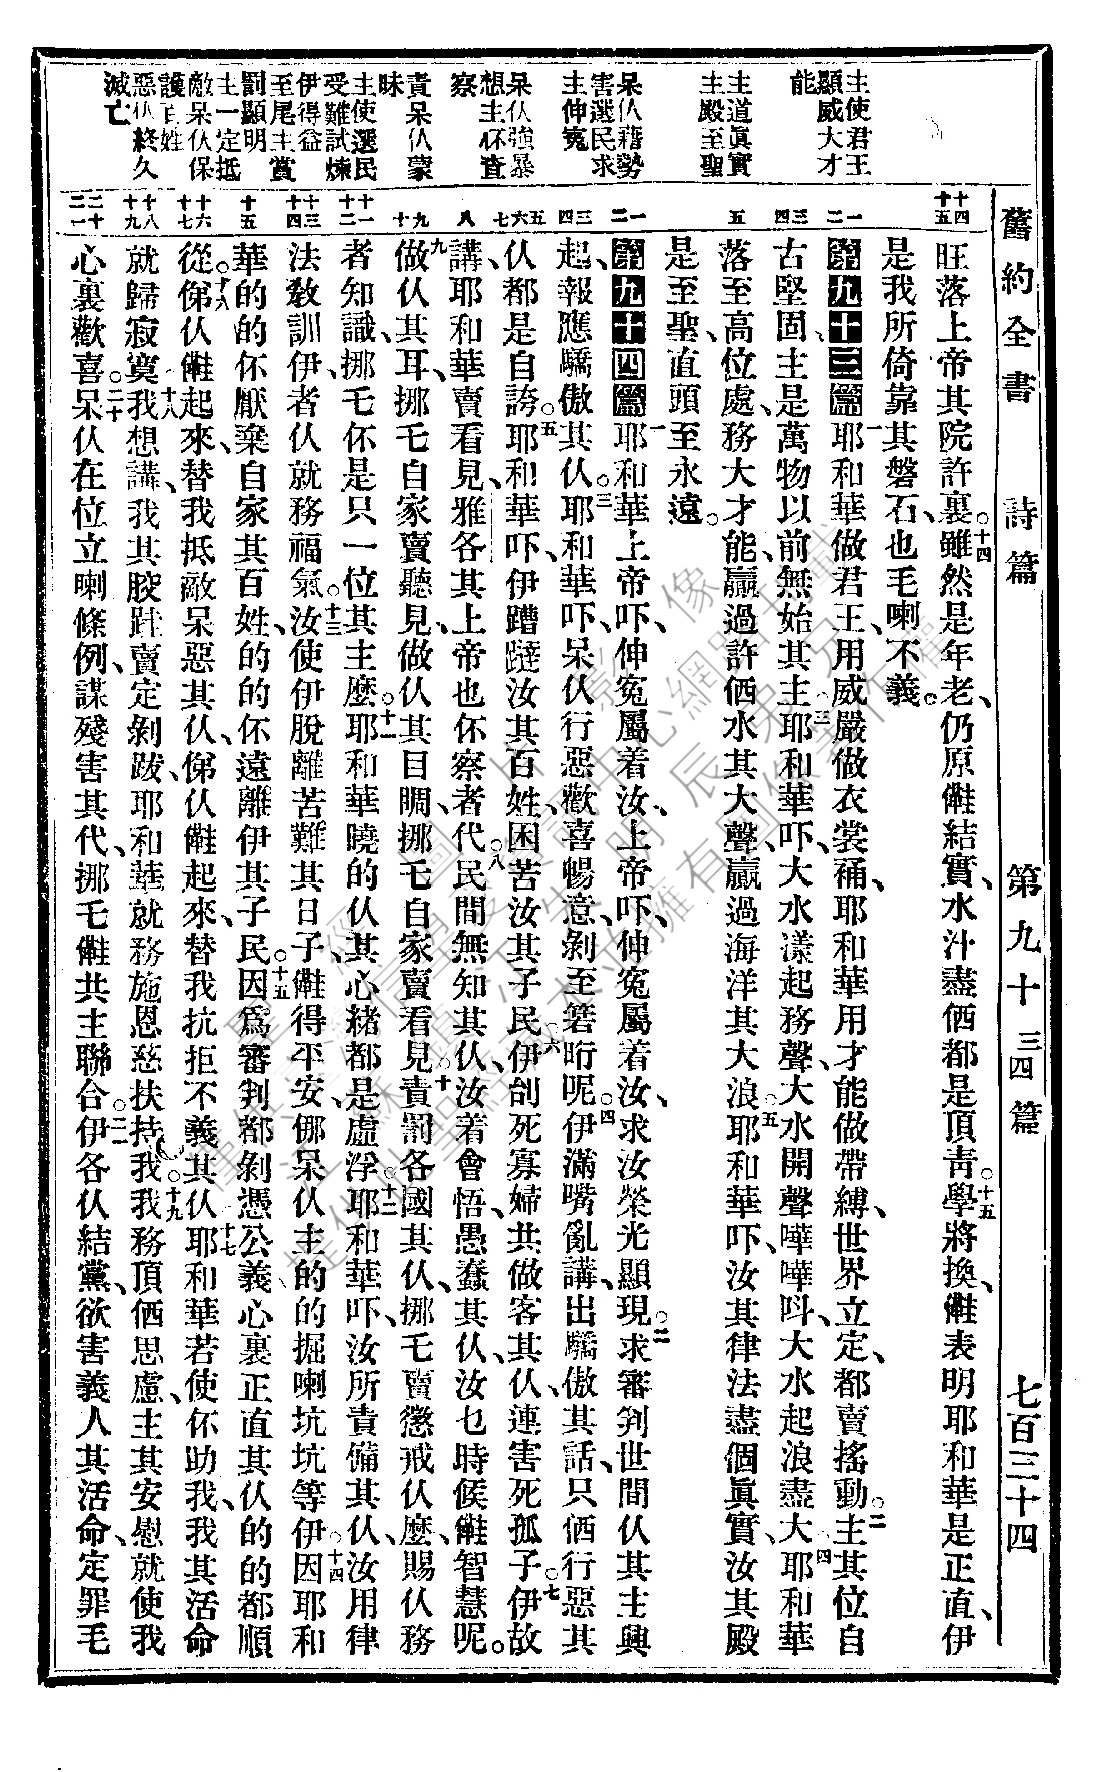 舊約全書 詩篇 第九十三四篇 七百三十四
主使君王
顯威大才
能
主道眞實
主殿至聖
呆仈藉勢
害選民求
主伸冤
呆仈強暴
想主伓查
察
責呆仈蒙
昧
主使選民
受難試煉
伊得益
至尾主賞
罰顯明
主一定抵
敵呆仈保
護百姓
惡仈終久
滅亡
十四 十五
一 二
三 四
五
一 二
三 四
五 六 七
八
九 十
十一 十二
十三 十四
十五
十六 十七
十八 十九
二十 二一
旺落上帝其院許裏。十四雖然是年老、仍原𣍐結實、水汁盡伵都是頂靑。十五學將換、𣍐表明耶和華是正直、伊
是我所倚靠其磐石、也毛喇不義。
第九十三篇 一耶和華做君王、用威嚴做衣裳䘼、耶和華用才能做帶縛、世界立定、都賣搖動。二主其位自
古堅固、主是萬物以前無始其主。三耶和華吓、大水漾起務聲、大水開聲嘩嘩呌、大水起浪盡大。四耶和華
落至高位處、務大才能、贏過許伵水其大聲、贏過海洋其大浪。五耶和華吓、汝其律法盡個眞實、汝其殿
是至聖、直頭至永遠。
第九十四篇 一耶和華上帝吓、伸冤屬着汝、上帝吓、伸冤屬着汝、求汝榮光顯現。二求審判世間仈其主興
起、報應驕傲其仈。三耶和華吓、呆仈行惡歡喜暢意、剝至箬𣉢呢。四伊滿嘴亂講、出驕傲其話、只伵行惡其
仈都是自誇。五耶和華吓、伊蹧躂汝其百姓、困苦汝其子民。六伊刣死寡婦、共做客其仈、連害死孤子。七伊故
講、耶和華賣看見、雅各其上帝也伓察者。八代民間無知其仈、汝着會悟、愚蠢其仈、汝乜時候𣍐智慧呢。
九做仈其耳、挪乇自家賣聽見、做仈其目瞷、挪乇自家賣看見。十責罰各國其仈、挪乇賣懲戒仈麼、賜仈務
者知識、挪乇伓是只一位其主麼。十一耶和華曉的仈其心緖都是虛浮。十二耶和華吓、汝所責備其仈、汝用律
法敎訓伊、者仈就務福氣。十三汝使伊脫離苦難其日子、𣍐得平安、㑚呆仈主的的掘喇坑坑等伊。十四因耶和
華的的伓厭棄自家其百姓、的的伓遠離伊其子民。十五因爲審判都剝憑公義、心裏正直其仈的的都順
從。十六俤仈𣍐起來、替我抵敵呆惡其仈、俤仈𣍐起來、替我抗拒不義其仈。十七耶和華若使伓助我、我其活命
就歸寂寞。十八我想講、我其骹跘賣定剝跋、耶和華就務施恩慈扶持我。十九我務頂伵思慮、主其安慰就使我
心裏歡喜。二十呆仈在位立喇條例、謀殘害其代、挪乇𣍐共主聯合。二一伊各仈結黨、欲害義人其活命、定罪毛